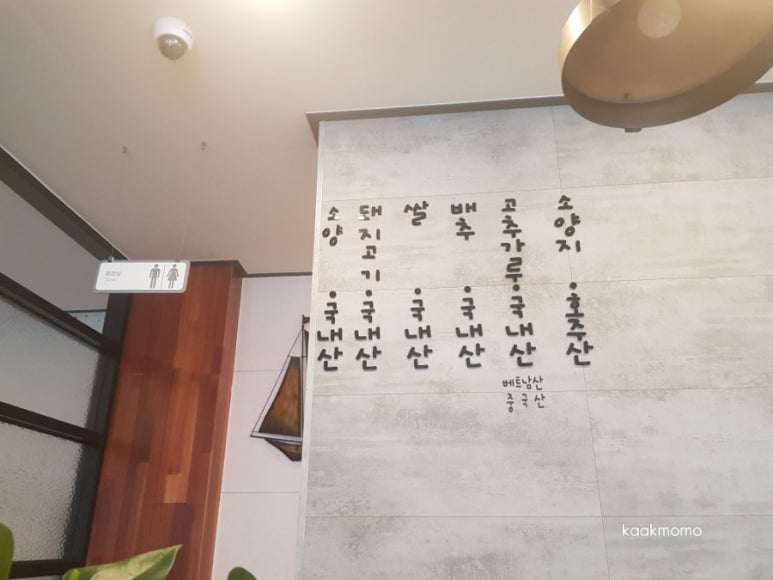 화장실
소양 · 국내산
돼지고기 · 국내산
쌀 · 국내산
배추 · 국내산
고추가루 · 국내산
베트남산
중국산
소양지 · 호주산
kaakmomo